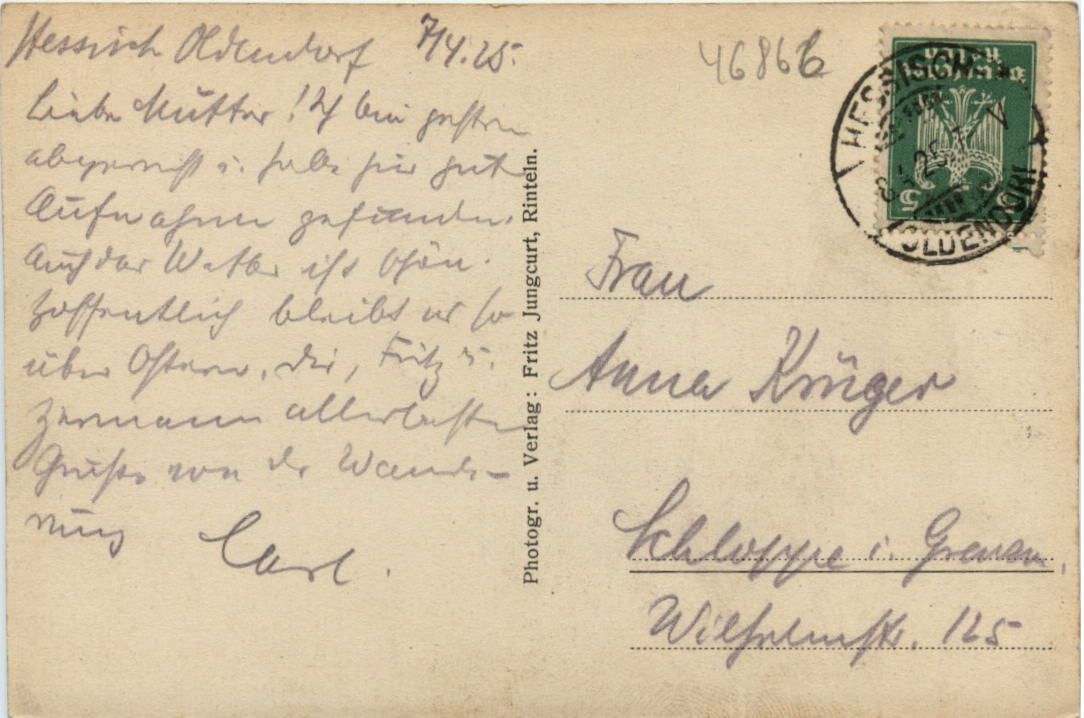 Hessisch Oldendorf 7/4.25.
46866
Liebe Mutter! Ich bin gestern
abgereist u. habe hier gute
Aufnahme gefunden.
Auch das Wetter ist schön.
Hoffentlich bleibt es so
über Ostern. Dir, Fritz u.
Hermann allerbeste
Grüße von der Wande-
rung
Carl.
Photogr. u. Verlag: Fritz Jungcurt, Rinteln.
HESSISCH
OLDENDORF
5
Frau
Anna Krüger
Schloppe i.
Wilhelmstr. 125